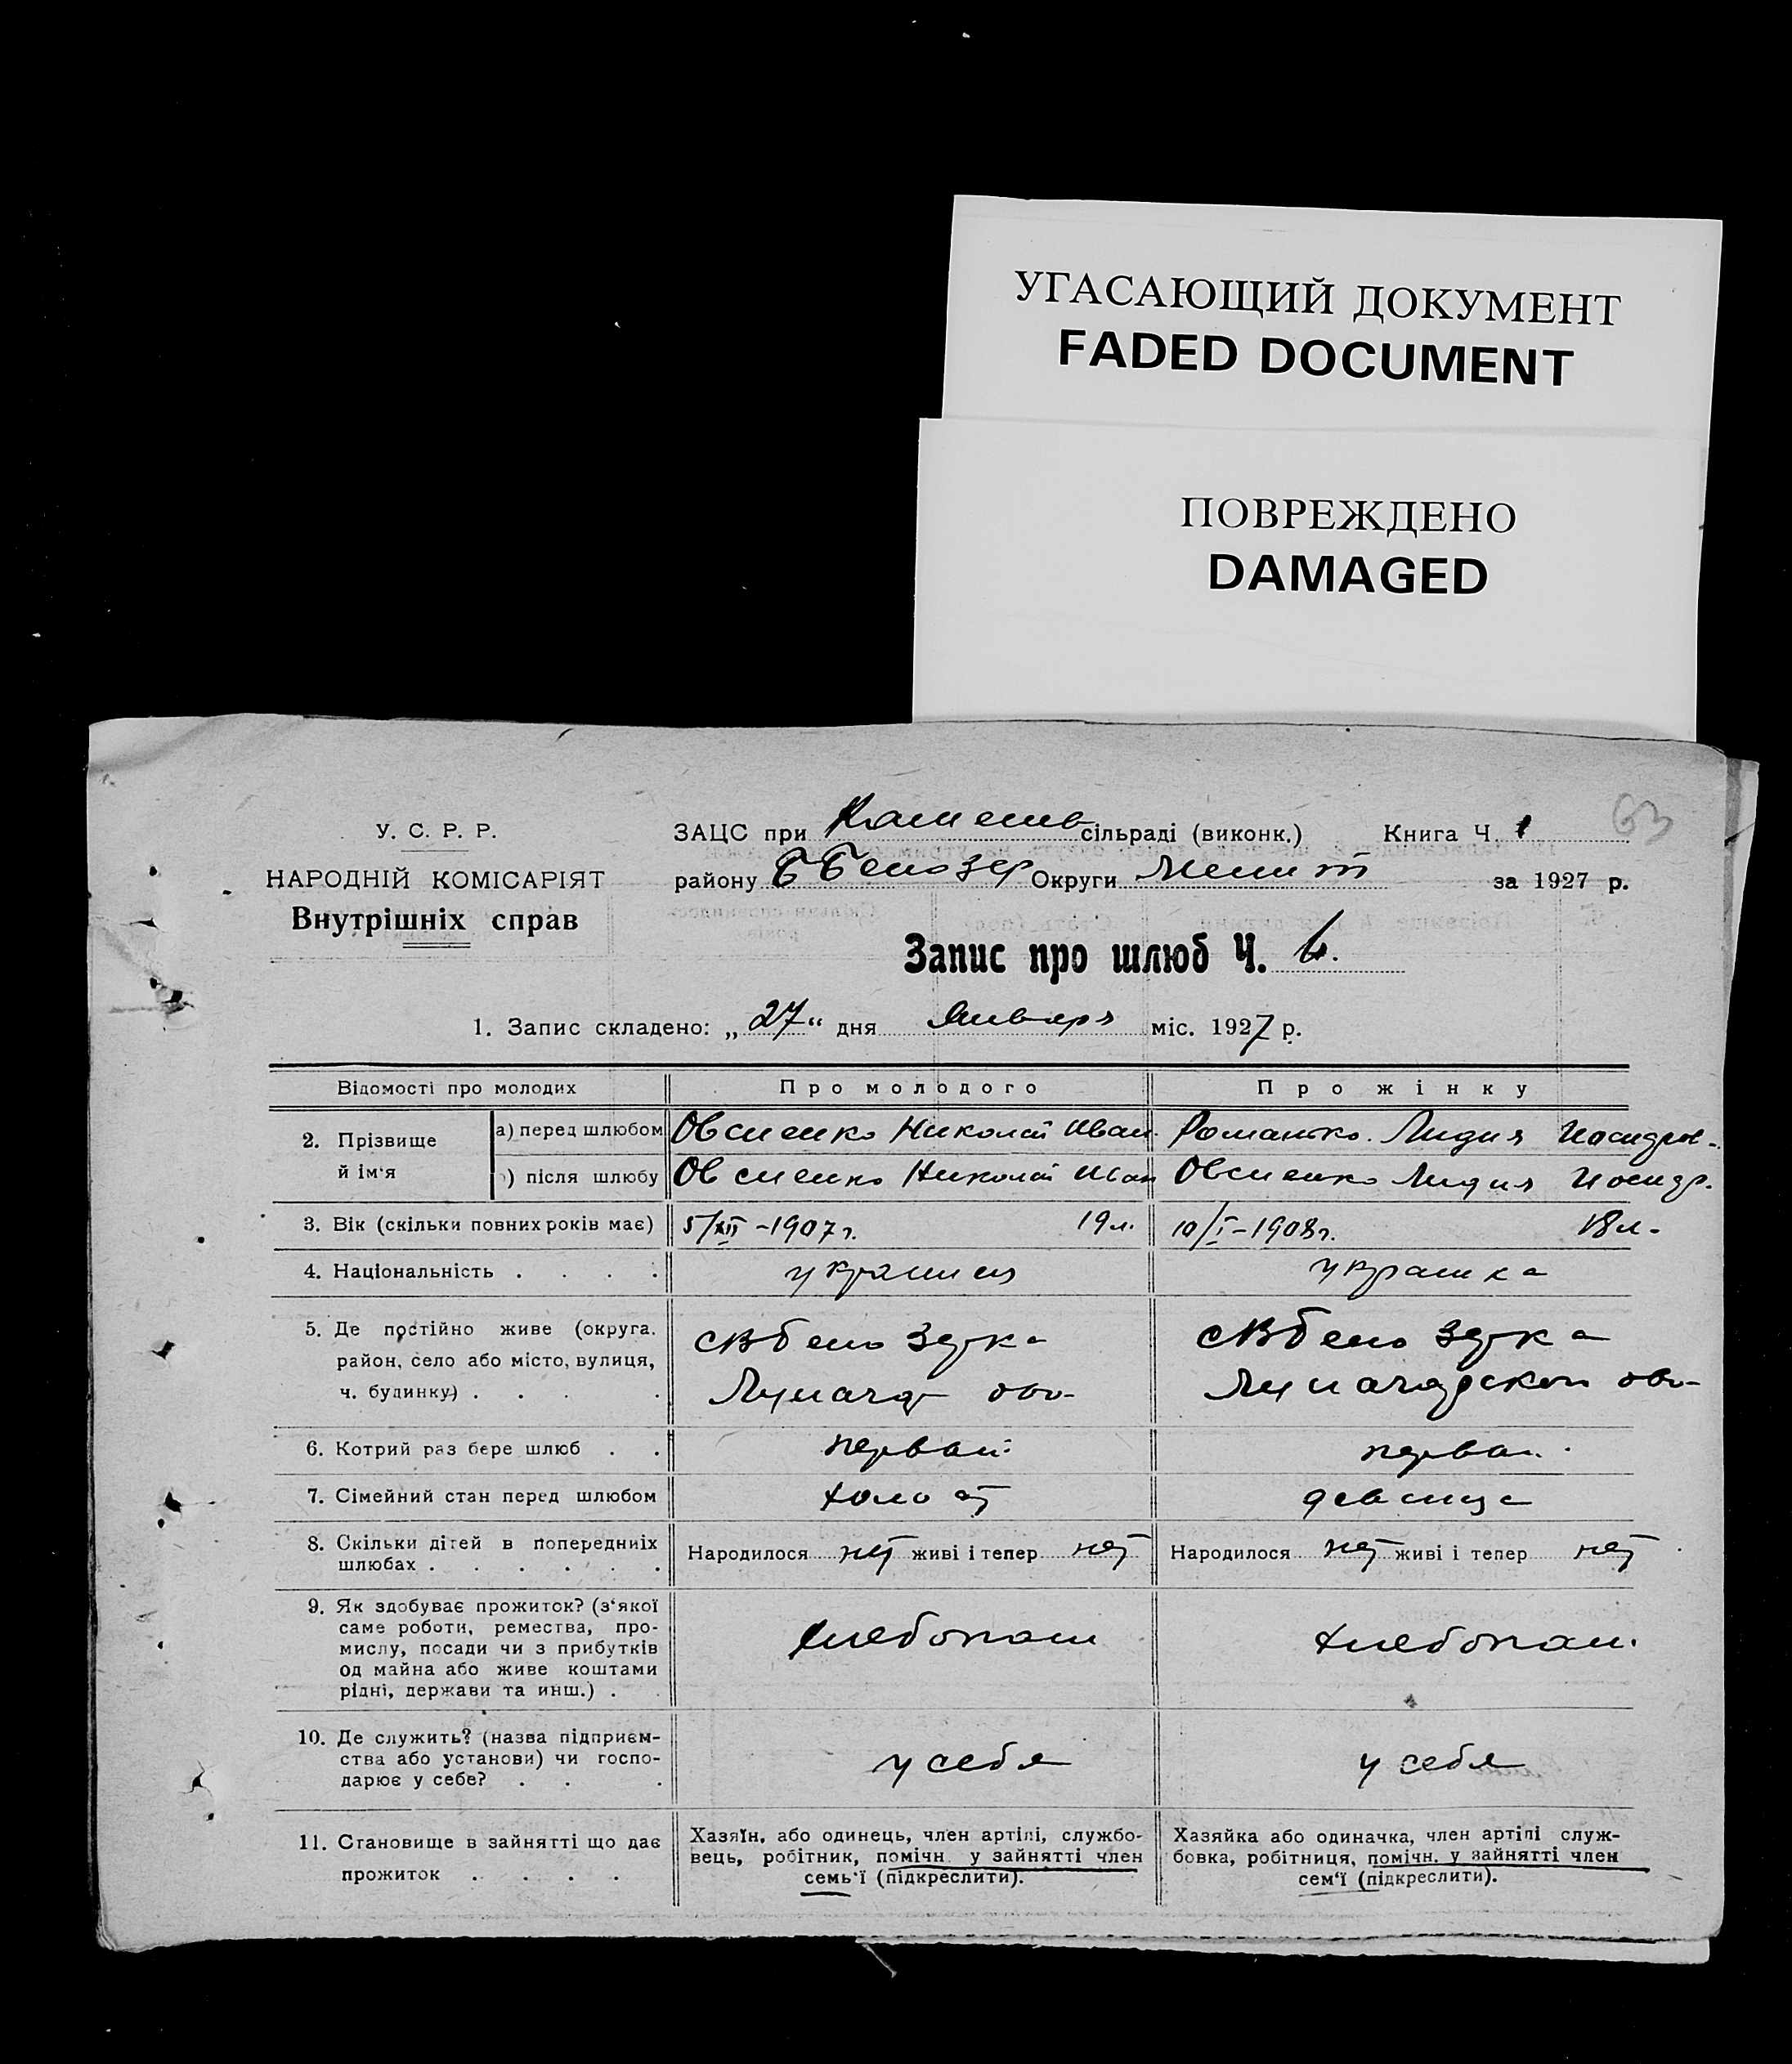 УГАСАЮЩИЙ ДОКУМЕНТ
FADED DOCUMENT
ПОВРЕЖДЕНО
DAMAGED
63
У. С. Р. Р.
НАРОДНІЙ КОМІСАРІЯТ
Внутрішніх справ
ЗАЦС при сільраді (виконк.) Книга Ч. 1
району Округи Мелит за 1927 р.
Запис про шлюб Ч. 6.
1. Запис складено: „27“ дня Января міс. 1927 р.
Відомості про молодих Про молодого Про жінку
2. Прізвище й ім‘я
а) перед шлюбом Овсиенко Николай Иван. Романтко. Лидия
) після шлюбу Овсиенко Николай Иван Овсиенко Лидия
3. Вік (скільки повних років має) 5/XII-1907 г. 19 л. 10/I-1908 г. 18 л.
4. Національність . . . . украинец украинка
5. Де постійно живе (округа.
район, село або місто, вулиця,
ч. будинку) . . . .
6. Котрий раз бере шлюб . . первый первый
7. Сімейний стан перед шлюбом холост девица
8. Скільки дітей в попередніх
шлюбах . . . . . .
Народилося нет живі і тепер нет Народилося нет живі і тепер нет
9. Як здобуває прожиток? (з‘якої
саме роботи, ремества, про-
мислу, посади чи з прибутків
од майна або живе коштами
рідні, держави та инш.) .
хлебопаш хлебопаш.
10. Де служить? (назва підприєм-
ства або установи) чи госпо-
дарює у себе? . . .
у себя у себя
11. Становище в зайнятті що дає
прожиток . . . .
Хазяїн, або одинець, член артілі, службо-
вець, робітник, помічн. у зайнятті член
семь‘ї (підкреслити).
Хазяйка або одиначка, член артілі служ-
бовка, робітниця, помічн. у зайнятті член
сем‘ї (підкреслити).